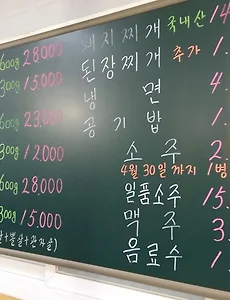 600g 28,000 돼지찌개 국내산 14
300g 15,000 된장찌개 추가 1.
냉 면 4.
600g 23,000 공기밥 1.
300g 12,000 소 주 2.
4월 30일까지 1병
600g 28,000 일품소주 15.
300g 15,000 맥 주 3.
음료수 1.